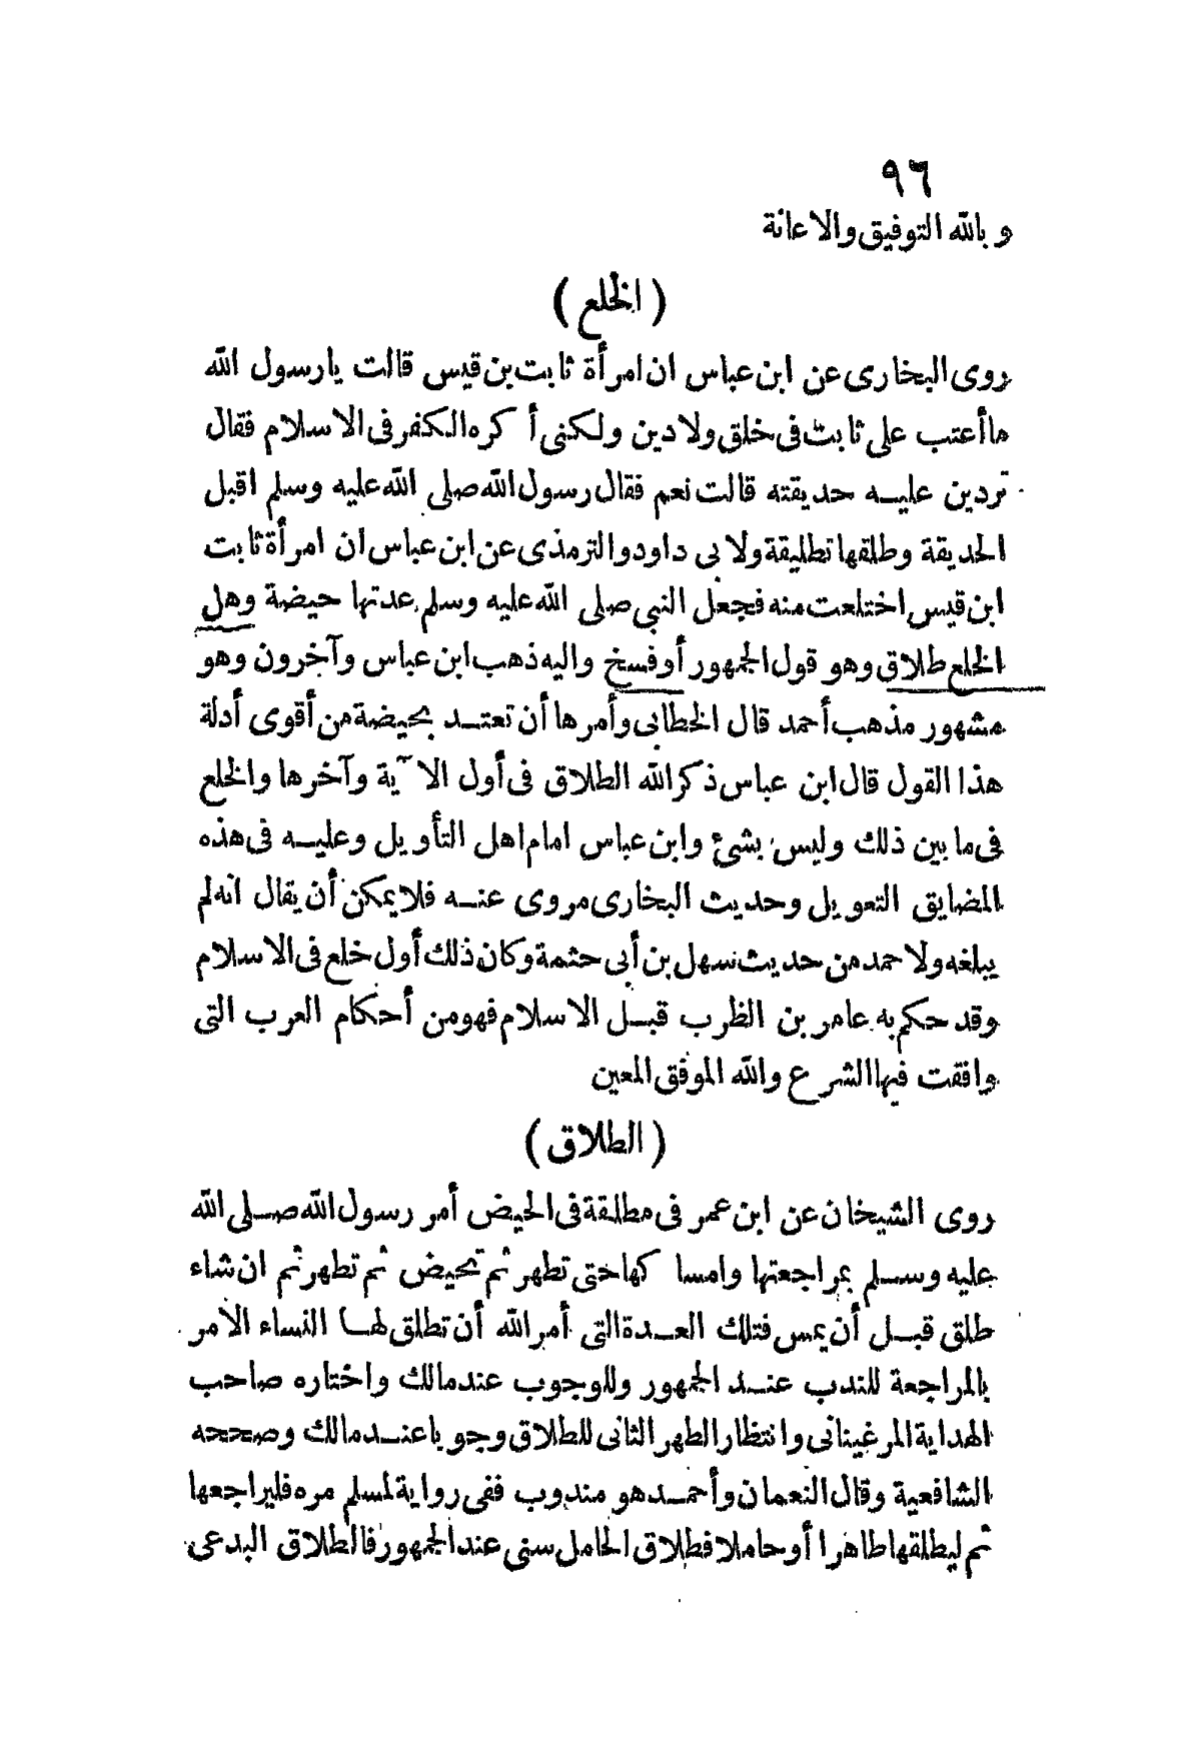 ٩٦
و بالله التوفيق والاعانة
( الخلع )
روى البخارى عن ابن عباس ان امرأة ثابت بن قيس قالت يارسول الله
ما أعتب على ثابت فى خلق ولا دين ولكنى أكره الكفر فى الاسلام فقال
تردين عليه حديقته قالت نعم فقال رسول الله صلى الله عليه وسلم اقبل
الحديقة وطلقها تطليقة ولابى داود والترمذى عن ابن عباس ان امرأة ثابت
ابن قيس اختلعت منه فجعل النبى صلى الله عليه وسلم عدتها حيضة وهل
الخلع طلاق وهو قول الجمهور أو فسخ واليه ذهب ابن عباس وآخرون وهو
مشهور مذهب أحمد قال الخطابى وأمرها أن تعتد بحيضة من أقوى أدلة
هذا القول قال ابن عباس ذكر الله الطلاق فى أول الآية وآخرها والخلع
فى ما بين ذلك وليس بشئ وابن عباس امام اهل التأويل وعليه فى هذه
المضايق التعويل وحديث البخارى مروى عنه فلا يمكن أن يقال انه لم
يبلغه ولاحمد من حديث سهل بن أبى حثمة وكان ذلك أول خلع فى الاسلام
وقد حكم به عامر بن الظرب قبل الاسلام فهو من أحكام العرب التى
وافقت فيها الشرع والله الموفق المعين
( الطلاق )
روى الشيخان عن ابن عمر فى مطلقة فى الحيض أمر رسول الله صلى الله
عليه وسلم بمراجعتها وامساكها حتى تطهر ثم تحيض ثم تطهر ثم ان شاء
طلق قبل أن يمس فتلك العدة التى أمر الله أن تطلق لها النساء الامر
بالمراجعة للندب عند الجمهور وللوجوب عند مالك واختاره صاحب
الهداية المرغينانى وانتظار الطهر الثانى للطلاق وجوبا عند مالك وصححه
الشافعية وقال النعمان وأحمد هو مندوب ففى رواية لمسلم مره فليراجعها
ثم ليطلقها طاهرا أو حاملا فطلاق الحامل سنى عند الجمهور فالطلاق البدعى